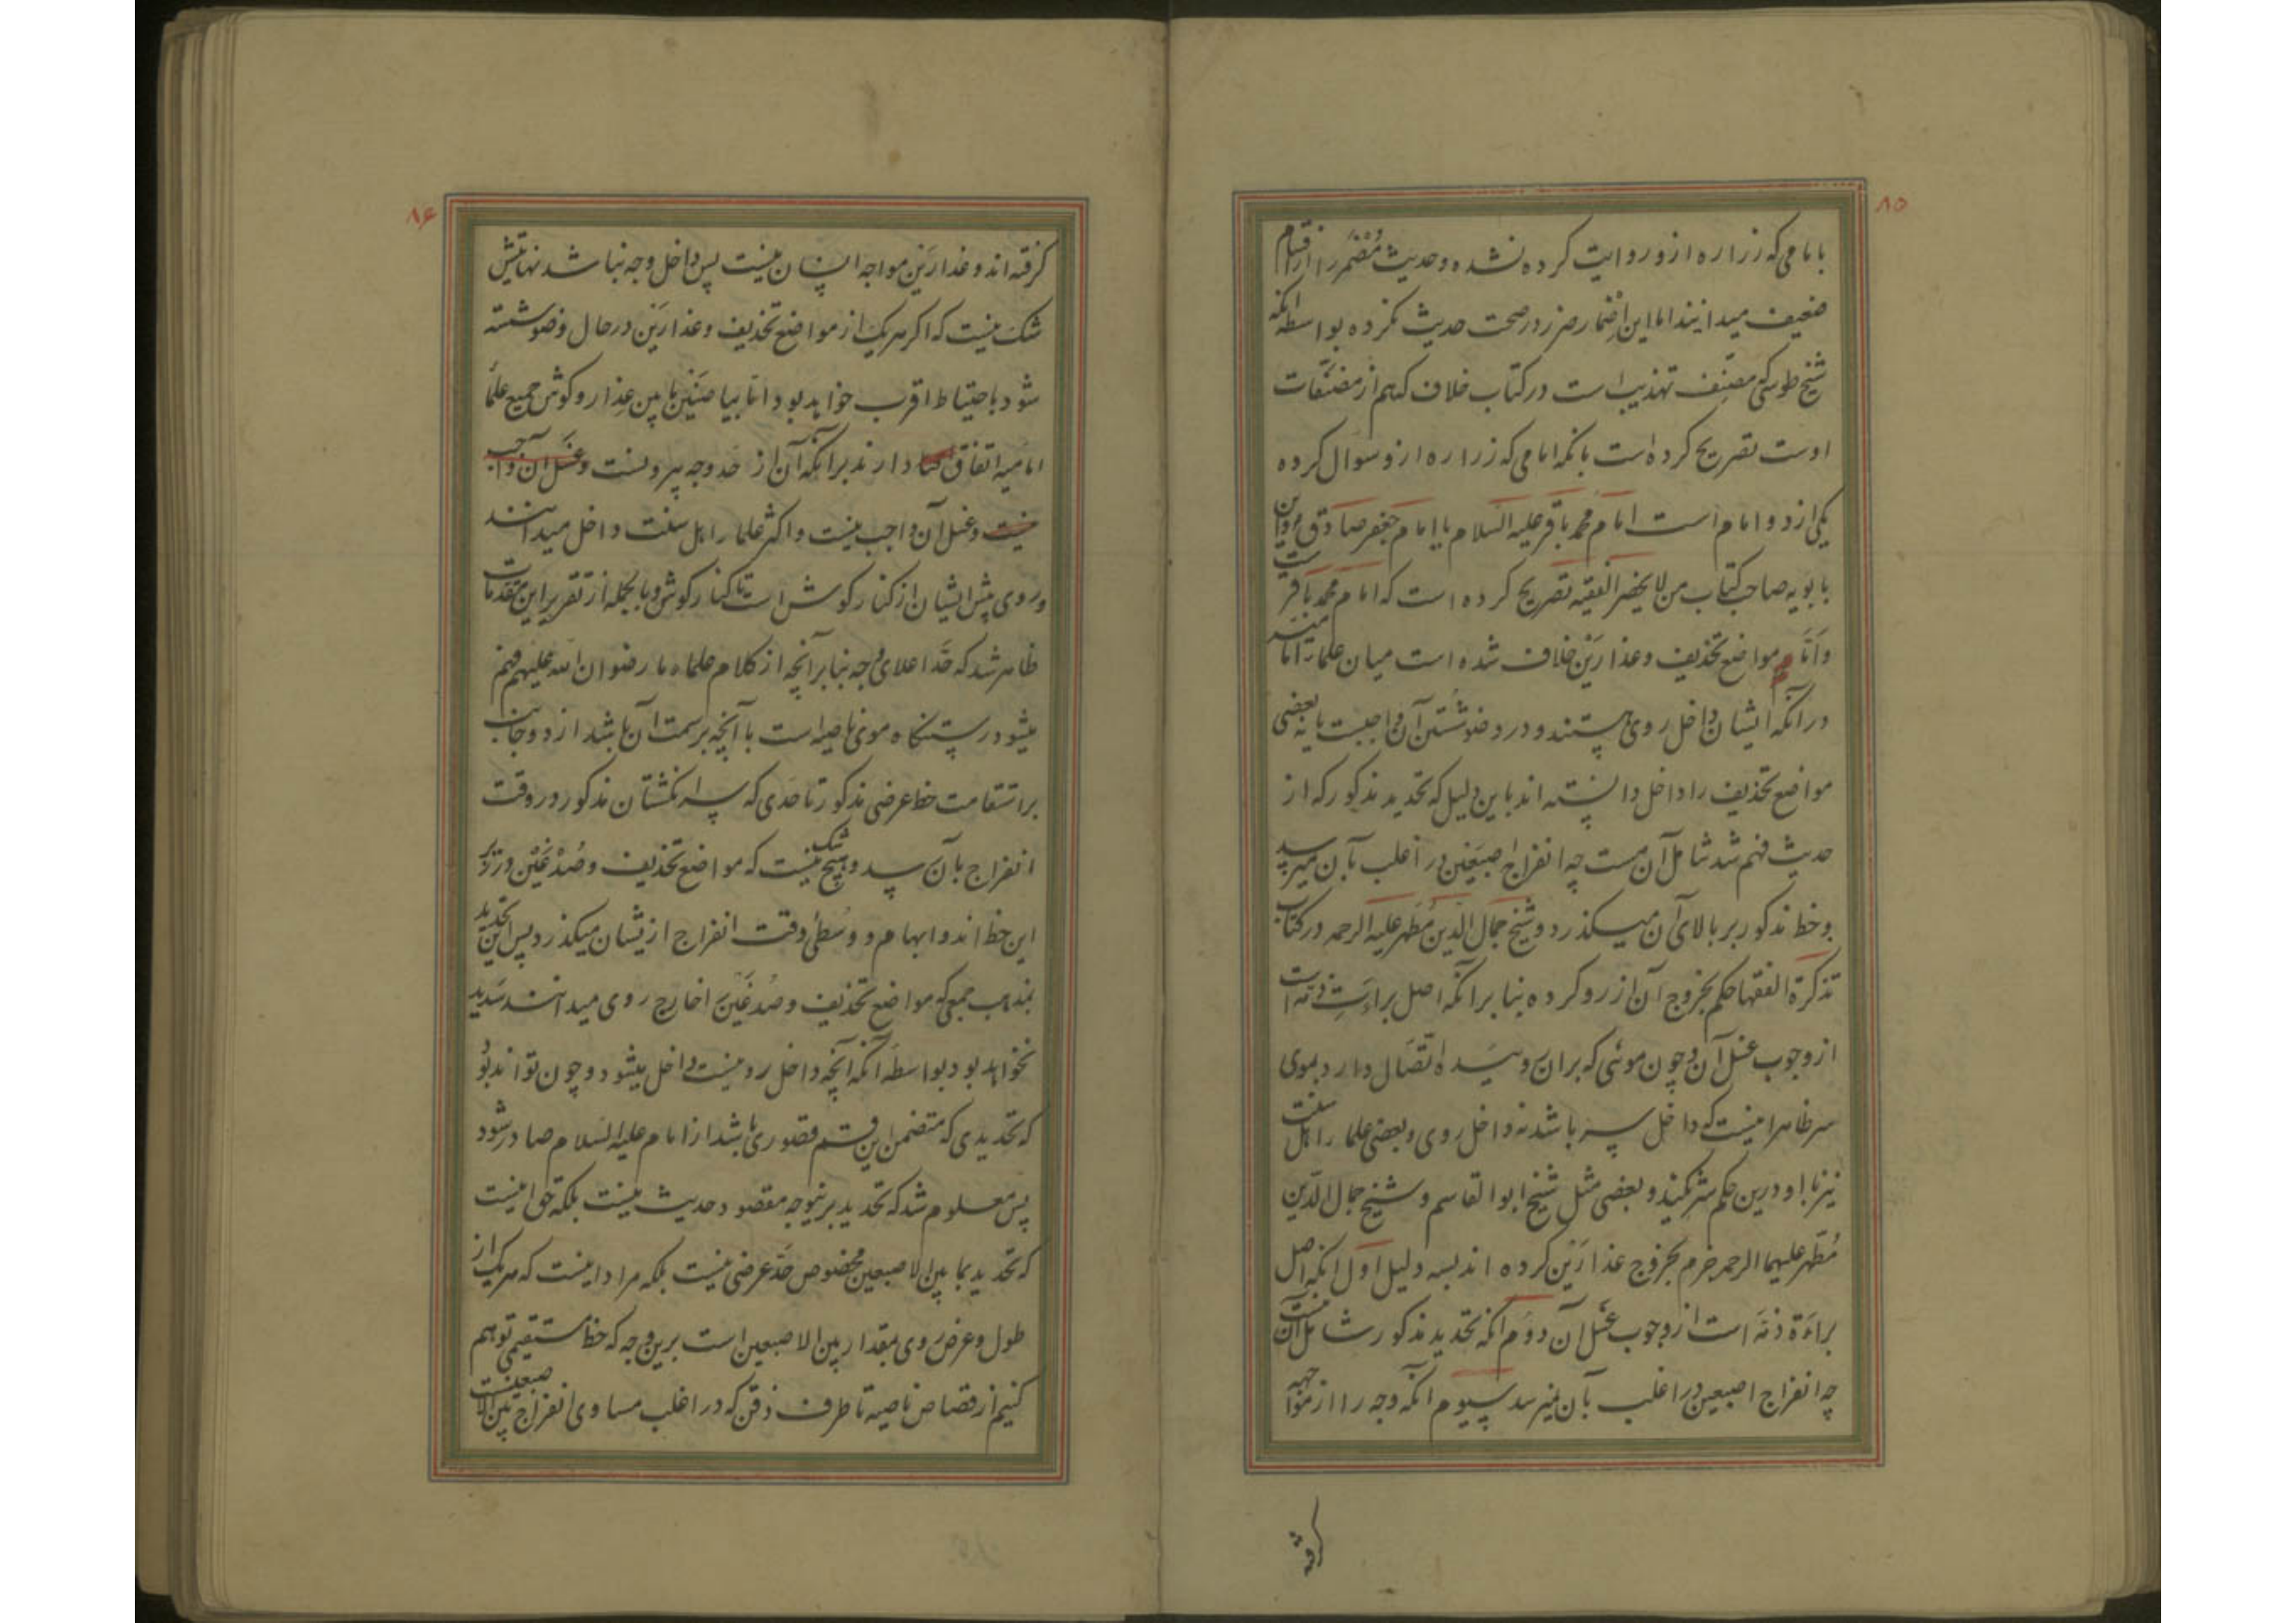 ۸۵
بامامی که زراره ازو روایت کرده نشده و حدیث مُضمَر را از اقسام
ضعیف میدانند اما این اضمار ضرر در صحت حدیث نکرده بواسطه انکه
شیخ طوسی که مصنف تهذیب است در کتاب خلاف که هم از مصنفات
اوست تصریح کرده است بانکه امامی که زراره ازو سوال کرده
یکی از دو امام است امام محمد باقر علیه السلام یا امام جعفر صادق و ابن
بابویه صاحب کتاب من لا یحضر الفقیه تصریح کرده است که امام محمد باقر است
و امّا مواضع تحذیف و عذارَین خلاف شده است میان علماء امامیه
در انکه ایشان داخل روی هستند و در وضو شُستن آن واجبست یا نه بعضی
مواضع تحذیف را داخل دانسته اند باین دلیل که تحدید مذکور که از
حدیث فهم شد شامل آن هست چه انفراج اصبَعَین در اغلب بآن میرسد
و خط مذکور بر بالای آن میگذرد و شیخ جمال الدین مُطَهر علیه الرحمه در کتاب
تذکرة الفقها حکم بخروج آن از رو کرده بنا بر انکه اصل براءت ذمه است
از وجوب غسل آن و چون موئی که بران روئیده اتصال دارد بموی
سر ظاهرا نیست که داخل سر باشد نه داخل روی و بعضی علماء اهل سنت
نیز با او درین حکم شریکند و بعضی مثل شیخ ابو القاسم و شیخ جمال الدین
مُطَهر علیهما الرحمه جزم بخروج عذارَین کرده اند بسه دلیل اول انکه اصل
براءة ذمّه است از وجوب غسل آن دوم انکه تحدید مذکور شامل آن نیست
چه انفراج اصبعین در اغلب بآن نمیرسد سیوم انکه وجه را از مواجهه
گرفته
۸۶
گرفته اند و عذارَین مواجه انسان نیست پس داخل وجه نباشد نهایتش
شک نیست که اکر هریک از مواضع تحذیف و عذارَین در حال وضو شسته
شود باحتیاط اقرب خواهد بود امّا بیاضَین مابین عذار و کوش جمیع علماء
امامیه اتفاق دارند بر انکه آن از حد وجه بیرونست و غسل ان واجب
نیست و غسل آن واجب نیست و اکثر علماء اهل سنت داخل میدانند
و روی پیش ایشان از کنار کوش است تا کنار کوش و بالجمله از تقریر این مقدمات
ظاهر شد که حدّ اعلای وجه بنا بر آنچه از کلام علماء ما رضوان الله علیهم فهم
میشود رستنگاه موی ناصیه است با آنچه بر سمت ان باشد از دو جانب
براستقامت خط عرضی مذکور تا حدی که سر انکشتان مذکور در وقت
انفراج بآن رسد و هیچ شک نیست که مواضع تحذیف و صُدغَین در زیر
این خط اند و ابهام و وسطی وقت انفراج از یشان میکذرد پس این تحدید
بمذهب جمعی که مواضع تحذیف و صُدغَین را خارج روی میدانند سدید
نخواهد بود بواسطه آنکه آنچه داخل رو نیست داخل میشود و چون تواند بود
که تحدیدی که متضمن این قسم قصوری باشد از امام علیه السلام صادر شود
پس معلوم شد که تحدید برینوجه مقصود حدیث نیست بلکه حق اینست
که تحدید بما بین الاصبعین مخصوص حدّ عرضی نیست بلکه مراد اینست که هریک از
طول و عرض روی بمقدار بین الاصبعین است برین وجه که خط مستقیمی توهم
کنیم از قصاص ناصیه تا طرف ذقن که در اغلب مساوی انفراج بین الاصبعینست